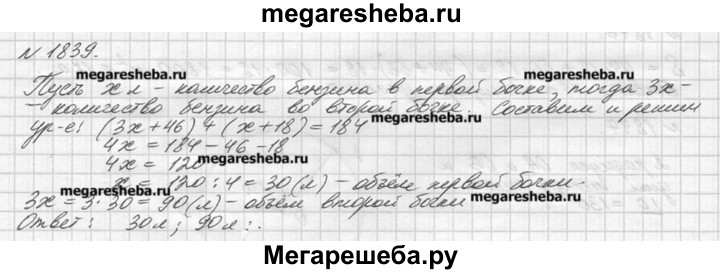 megaresheba.ru
N 1839.
megaresheba.ru
megaresheba.ru
Пусть x л - количество бензина в первой бочке, тогда 3x -
- количество бензина во второй бочке. Составим и решим
ур-е: (3x + 46) + (x + 18) = 184
megaresheba.ru
4x = 184 - 46 - 18
4x = 120
megaresheba.ru
x = 120 : 4 = 30 (л) - объём первой бочки.
megaresheba.ru
3x = 3 · 30 = 90 (л) - объём второй бочки
megaresheba.ru
Ответ: 30 л; 90 л.
Мегарешеба.ру